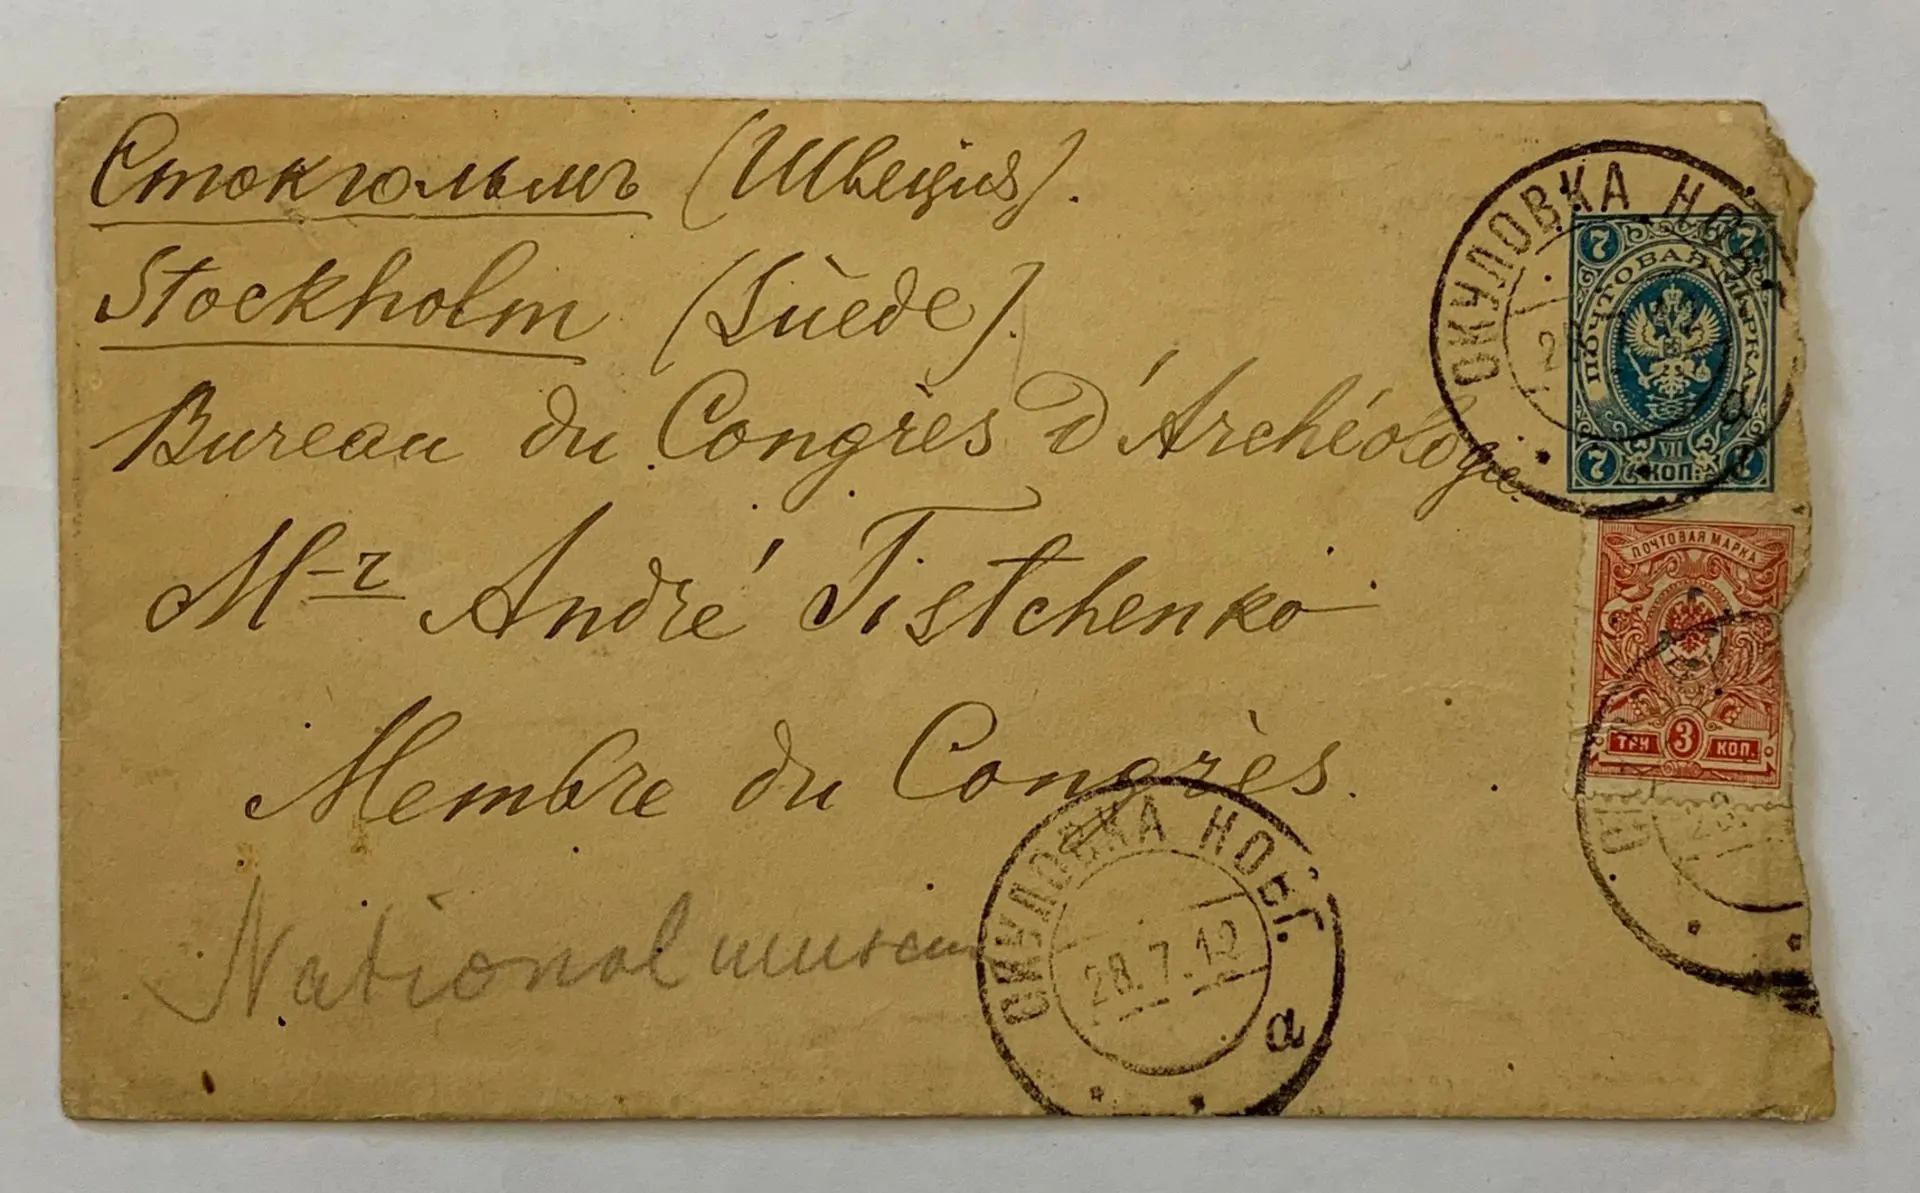 Стокгольмъ (Швецiя).
Stockholm (Suède).
Bureau du Congrès d'Archéologie.
M-r André Tistchenko
Membre du Congrès.
National museum
ОКУЛОВКА НОВГ.
а
7 7
ПОЧТОВАЯ МАРКА
VII
КОП.
7 7
ПОЧТОВАЯ МАРКА
ТРИ 3 КОП.
ОКУЛОВКА НОВГ.
28.7.12
а